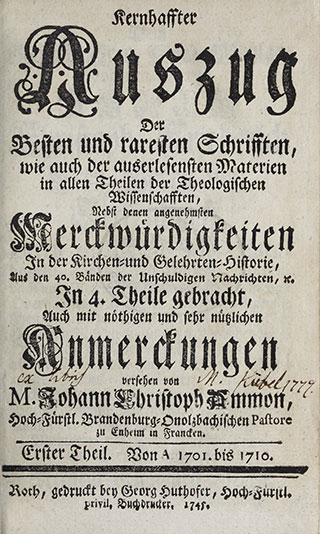 Kernhaffter
Auszug
Der
Besten und raresten Schrifften,
wie auch der auserlesensten Materien
in allen Theilen der Theologischen
Wissenschafften,
Nebst denen angenehmsten
Merckwürdigkeiten
In der Kirchen-und Gelehrten-Historie,
Aus den 40. Bänden der Unschuldigen Nachrichten, ꝛc.
In 4. Theile gebracht,
Auch mit nöthigen und sehr nützlichen
Anmerckungen
ex libris M. Kübel 1777.
versehen von
M. Johann Christoph Ammon,
Hoch-Fürstl. Brandenburg-Onolzbachischen Pastore
zu Enheim in Francken.
Erster Theil. Von A 1701. bis 1710.
Roth, gedruckt bey Georg Huthofer, Hoch-Fürstl.
privil. Buchdrucker. 1745.